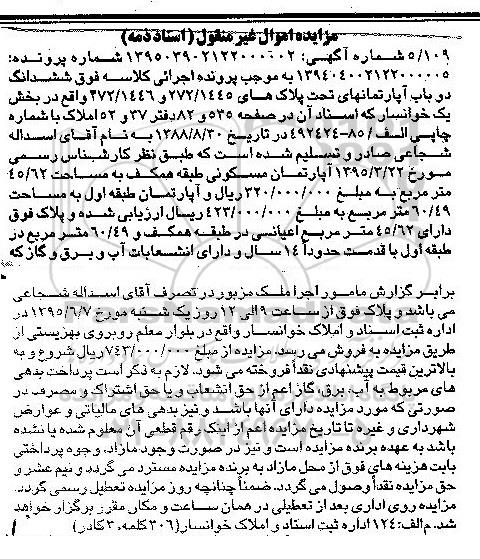 مزایده اموال غیر منقول (اسناد ذمه)
۵/۱۰۹ شماره آگهی: ۱۳۹۵۰۳۹۰۲۱۲۲۰۰۰۰۰۲ شماره پرونده:
۱۳۹۴۰۴۰۰۲۱۲۲۰۰۰۰۰۵ به موجب پرونده اجرائی کلاسه فوق ششدانگ
دو باب آپارتمانهای تحت پلاک های ۲۷۲/۱۴۴۵ و ۲۷۲/۱۴۴۶ واقع در بخش
یک خوانسار که اسناد آن در صفحه ۵۳۵ و ۸۲ دفتر ۳۷ و ۵۲ املاک با شماره
چاپی الف/۸۵-۴۹۲۴۲۴ در تاریخ ۱۳۸۸/۸/۳۰ به نام آقای اسداله
شجاعی صادر و تسلیم شده است که طبق نظر کارشناس رسمی
مورخ ۱۳۹۵/۳/۲۲ آپارتمان مسکونی طبقه همکف به مساحت ۴۵/۶۲
متر مربع به مبلغ ۳۲۰/۰۰۰/۰۰۰ ریال و آپارتمان طبقه اول به مساحت
۶۰/۴۹ متر مربع به مبلغ ۴۲۳/۰۰۰/۰۰۰ ریال ارزیابی شده و پلاک فوق
دارای ۴۵/۶۲ متر مربع اعیانی در طبقه همکف و ۶۰/۴۹ متر مربع در
طبقه اول با قدمت حدوداً ۱۴ سال و دارای انشعابات آب و برق و گاز که
برابر گزارش مامور اجرا ملک مزبور در تصرف آقای اسداله شجاعی
می باشد و پلاک فوق از ساعت ۹ الی ۱۲ روز یک شنبه مورخ ۱۳۹۵/۶/۷ در
اداره ثبت اسناد و املاک خوانسار واقع در بلوار معلم روبروی بهزیستی از
طریق مزایده به فروش می رسد. مزایده از مبلغ ۷۴۳/۰۰۰/۰۰۰ ریال شروع و به
بالاترین قیمت پیشنهادی نقداً فروخته می شود. لازم به ذکر است پرداخت بدهی
های مربوط به آب، برق، گاز اعم از حق انشعاب و یا حق اشتراک و مصرف در
صورتی که مورد مزایده دارای آنها باشد و نیز بدهی های مالیاتی و عوارض
شهرداری و غیره تا تاریخ مزایده اعم از اینکه رقم قطعی آن معلوم شده یا نشده
باشد به عهده برنده مزایده است و نیز در صورت وجود مازاد، وجوه پرداختی
بابت هزینه های فوق از محل مازاد به برنده مزایده مسترد می گردد و نیم عشر و
حق مزایده نقداً وصول می گردد. ضمناً چنانچه روز مزایده تعطیل رسمی گردد،
مزایده روز اداری بعد از تعطیلی در همان ساعت و مکان مقرر برگزار خواهد
شد. م الف: ۱۲۴ اداره ثبت اسناد و املاک خوانسار (۳۰۶ کلمه، ۳ کادر)